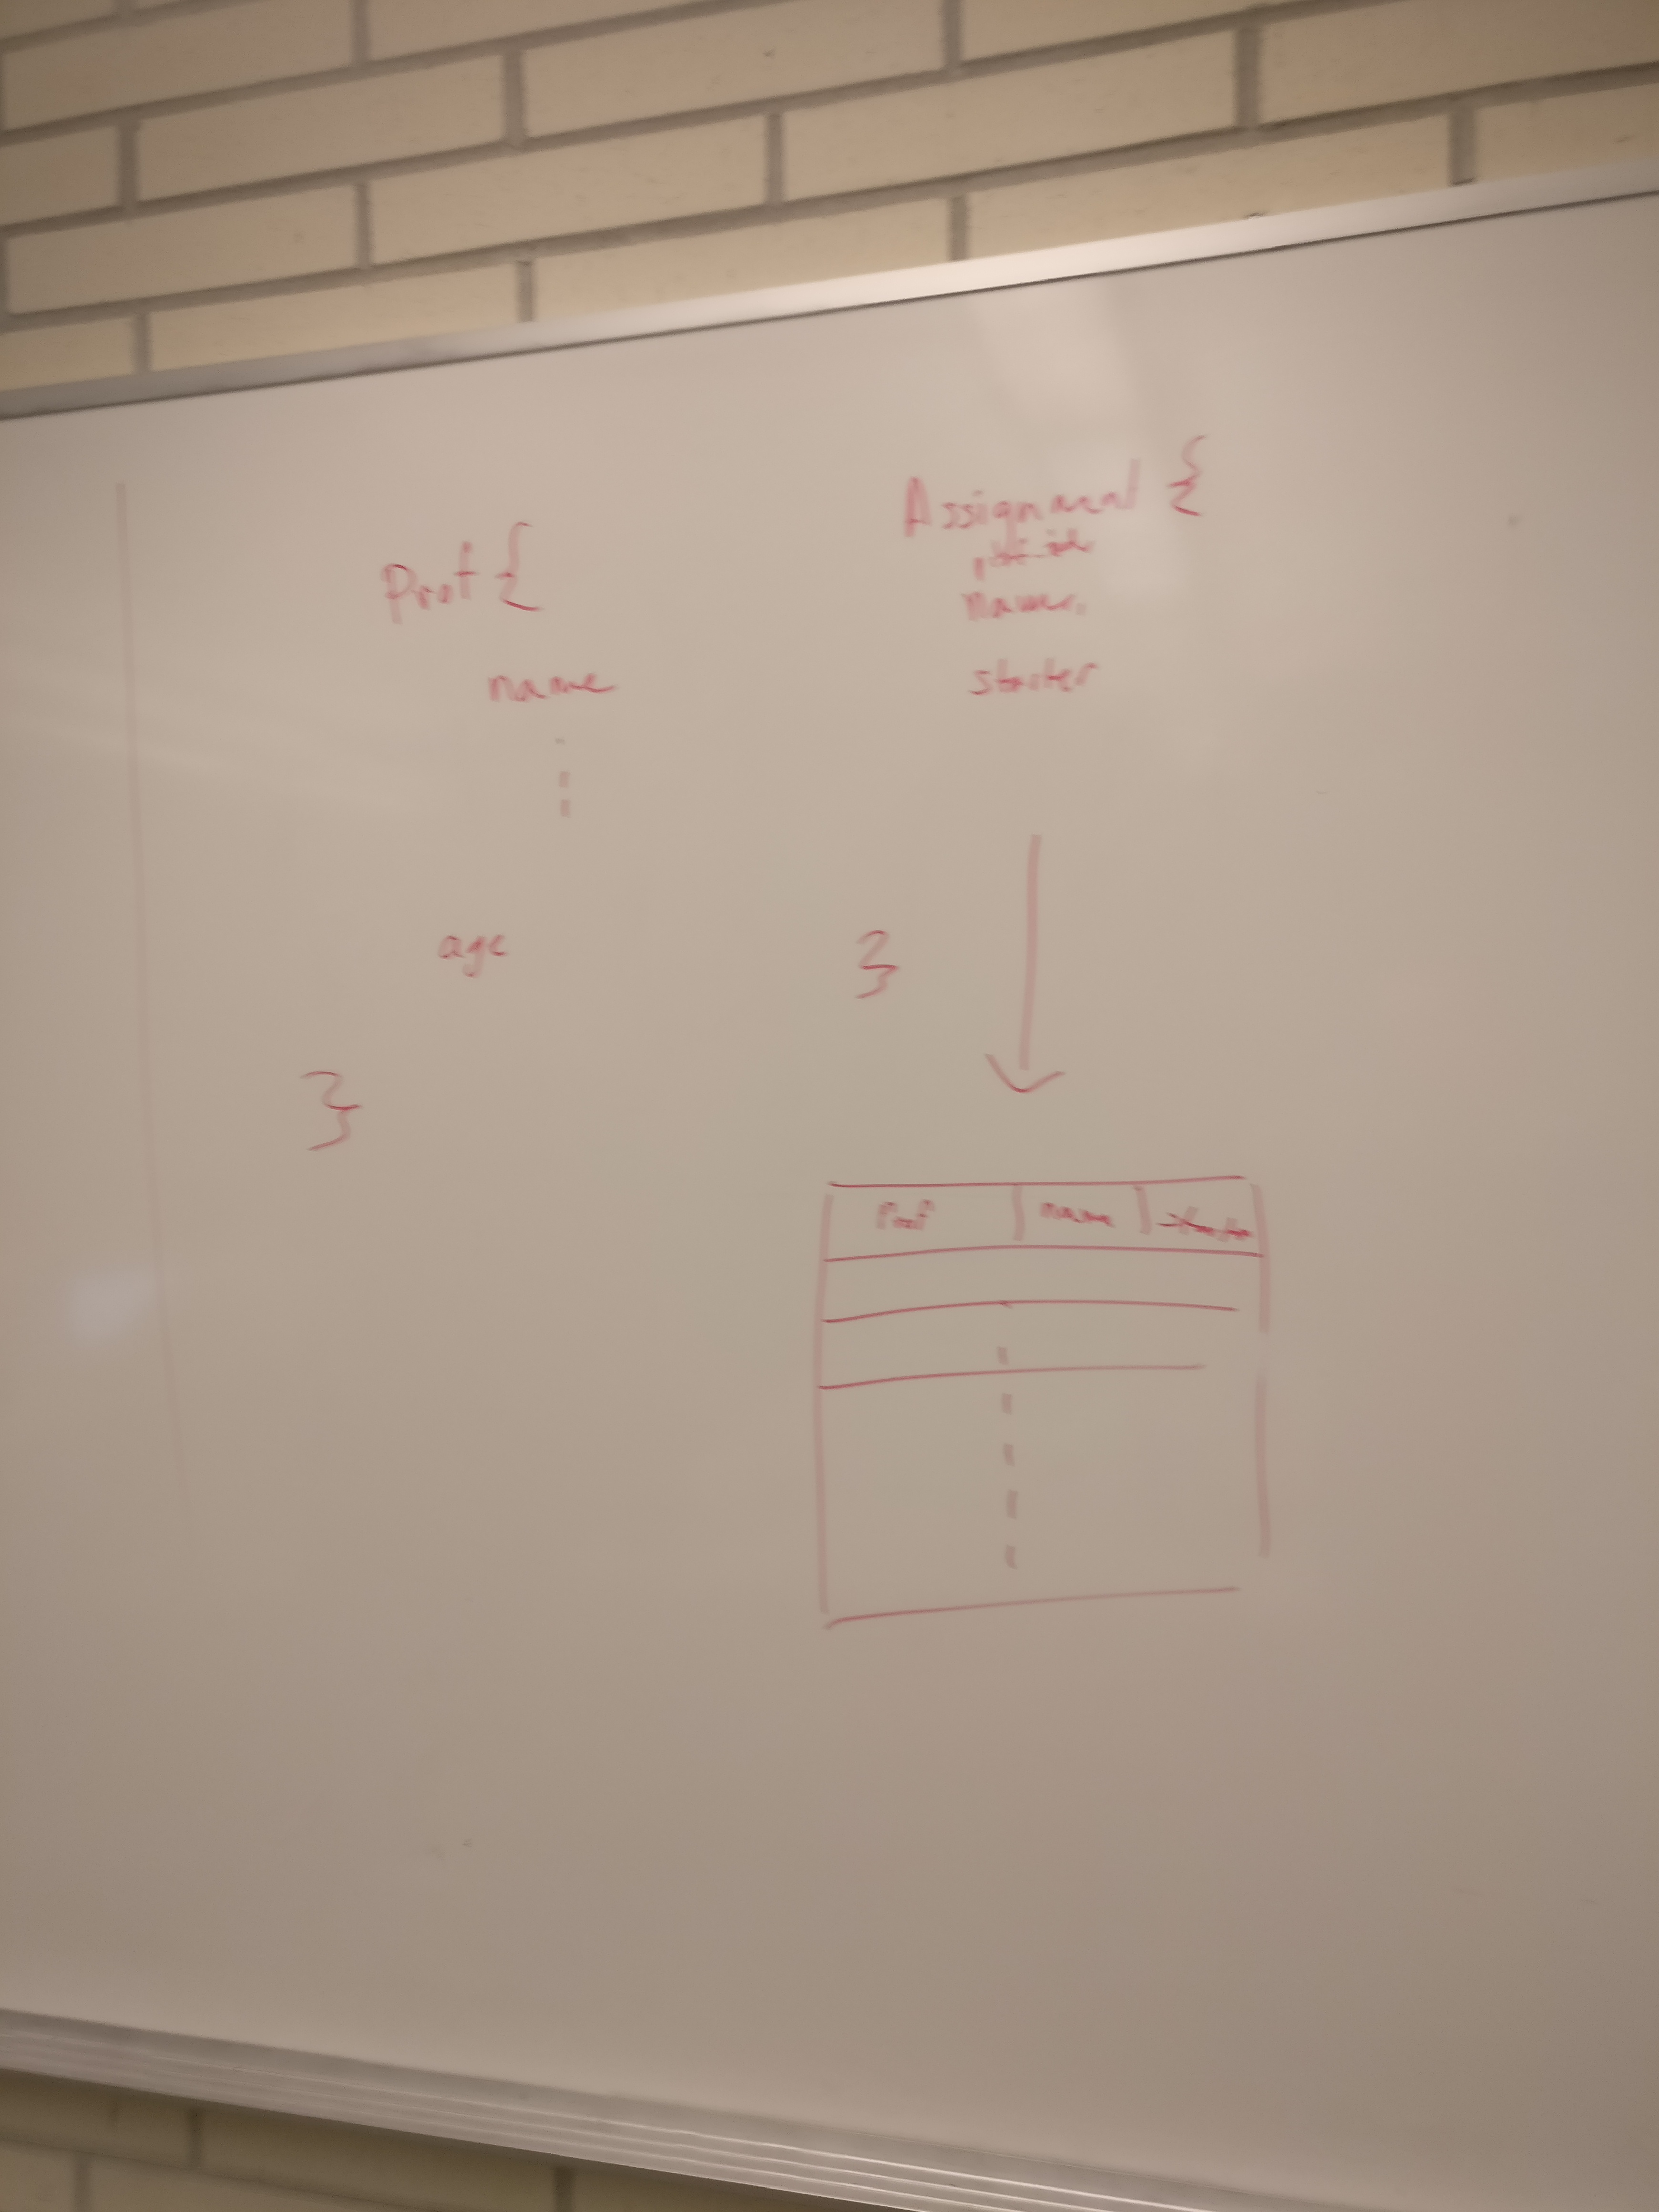 Prof {
name
age
}
Assignment {
name
starter
}
Prof name